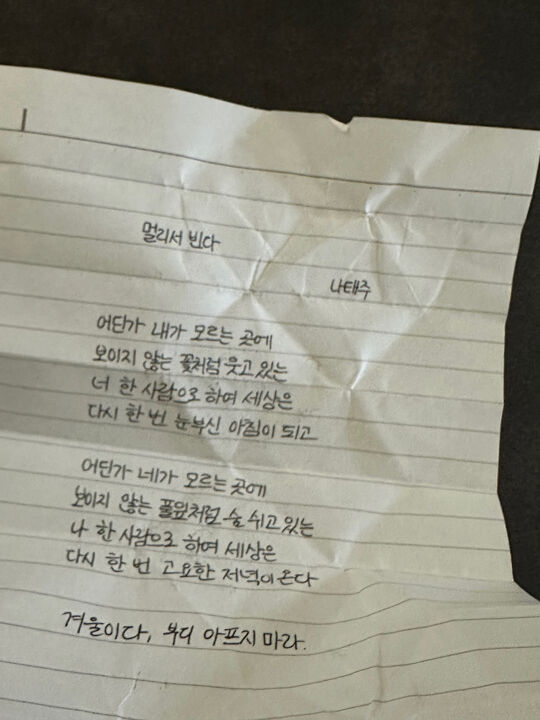 멀리서 빈다
나태주
어딘가 내가 모르는 곳에
보이지 않는 꽃처럼 웃고 있는
너 한 사람으로 하여 세상은
다시 한 번 눈부신 아침이 되고
어딘가 네가 모르는 곳에
보이지 않는 풀잎처럼 숨 쉬고 있는
나 한 사람으로 하여 세상은
다시 한 번 고요한 저녁이 온다
겨울이다, 부디 아프지 마라.